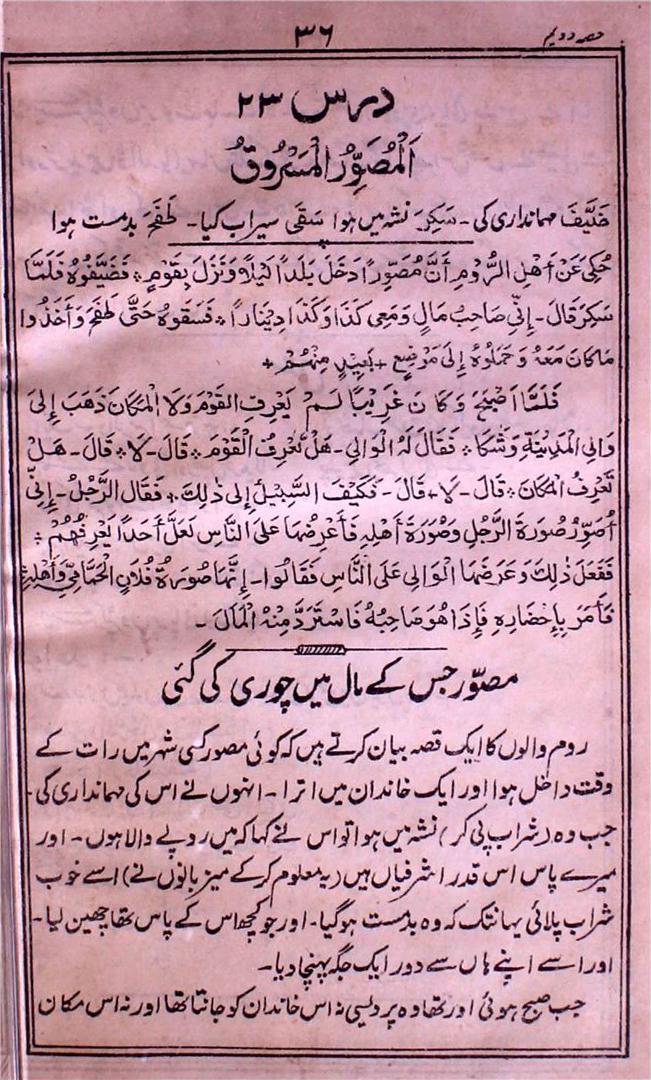 حصہ دویم
۳۶
درس ۲۳
اَلْمُصَوِّرُ الْمَسْرُوْقُ
ضَيَّفَ مہمانداری کی۔ سَكِرَ نشہ میں ہوا سَقٰى سیراب کیا۔ طَفَحَ بدمست ہوا
حُكِيَ عَنْ أَهْلِ الرُّوْمِ أَنَّ مُصَوِّرًا دَخَلَ بَلَدًا لَيْلًا وَنَزَلَ بِقَوْمٍ ۞ فَضَيَّفُوْهُ فَلَمَّا
سَكِرَ قَالَ۔ إِنِّي صَاحِبُ مَالٍ وَمَعِي كَذَا وَكَذَا دِيْنَارًا ۞ فَسَقَوْهُ حَتَّى طَفَحَ وَأَخَذُوا
مَا كَانَ مَعَهُ وَحَمَلُوْهُ إِلَى مَوْضِعٍ + بَعِيْدٍ مِنْهُمْ +
فَلَمَّا أَصْبَحَ وَكَانَ غَرِيْبًا لَمْ يَعْرِفِ الْقَوْمَ وَلَا الْمَكَانَ ذَهَبَ إِلَى
وَالِي الْمَدِيْنَةِ وَشَكَا ۞ فَقَالَ لَهُ الْوَالِي۔ هَلْ تَعْرِفُ الْقَوْمَ ۞ قَالَ۔ لَا ۞ قَالَ۔ هَلْ
تَعْرِفُ الْمَكَانَ ۞ قَالَ۔ لَا + قَالَ۔ فَكَيْفَ السَّبِيْلُ إِلَى ذٰلِكَ ۞ فَقَالَ الرَّجُلُ۔ إِنِّي
أُصَوِّرُ صُوْرَةَ الرَّجُلِ وَصُوْرَةَ أَهْلِهِ فَأَعْرِضُهَا عَلَى النَّاسِ لَعَلَّ أَحَدًا يَعْرِفُهُمْ ۞
فَفَعَلَ ذٰلِكَ وَعَرَضَهَا الْوَالِي عَلَى النَّاسِ فَقَالُوْا۔ إِنَّهَا صُوْرَةُ فُلَانٍ الْحَمَّامِيِّ وَأَهْلِهِ
فَأَمَرَ بِإِحْضَارِهِ فَإِذَا هُوَ صَاحِبُهُ فَاسْتَرَدَّ مِنْهُ الْمَالَ۔
مصوّر جس کے مال میں چوری کی گئی
روم والوں کا ایک قصہ بیان کرتے ہیں کہ کوئی مصور کسی شہر میں رات کے
وقت داخل ہوا اور ایک خاندان میں اترا۔ انہوں نے اس کی مہمانداری کی۔
جب وہ (شراب پی کر) نشہ میں ہوا تو اس نے کہا کہ میں روپے والا ہوں۔ اور
میرے پاس اس قدر اشرفیاں ہیں (یہ معلوم کر کے میزبانوں نے) اسے خوب
شراب پلائی یہانتک کہ وہ بدمست ہو گیا۔ اور جو کچھ اس کے پاس تھا چھین لیا۔
اور اسے اپنے ہاں سے دور ایک جگہ پہنچا دیا۔
جب صبح ہوئی اور تھا وہ پردیسی نہ اس خاندان کو جانتا تھا اور نہ اس مکان